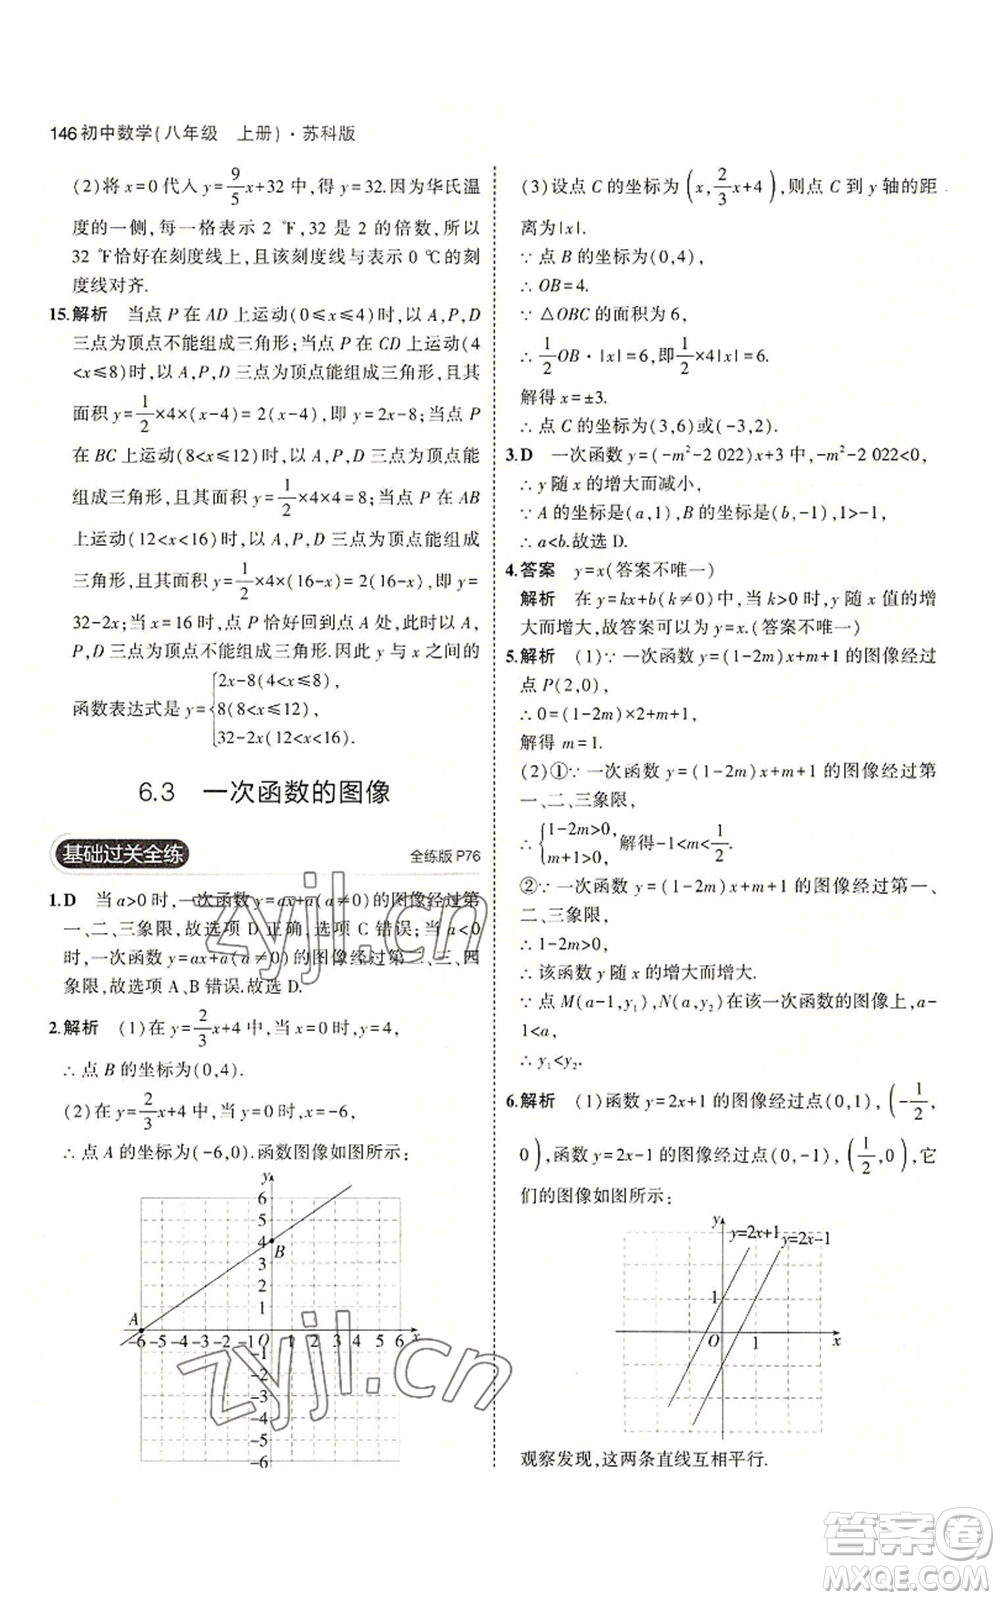 146初中数学(八年级 上册)·苏科版
(2)将 x=0代入 y=9/5x+32 中,得 y=32.因为华氏温
度的一侧,每一格表示 2 ℉,32 是 2 的倍数,所以
32 ℉恰好在刻度线上,且该刻度线与表示 0 ℃的刻
度线对齐.
15.解析 当点 P 在 AD 上运动(0≤x≤4)时,以 A,P,D
三点为顶点不能组成三角形;当点 P 在 CD 上运动(4
<x≤8)时,以 A,P,D 三点为顶点能组成三角形,且其
面积 y=1/2×4×(x-4)=2(x-4),即 y=2x-8;当点 P
在 BC 上运动(8<x≤12)时,以 A,P,D 三点为顶点能
组成三角形,且其面积 y=1/2×4×4=8;当点 P 在 AB
上运动(12<x<16)时,以 A,P,D 三点为顶点能组成
三角形,且其面积 y=1/2×4×(16-x)=2(16-x),即 y=
32-2x;当 x=16 时,点 P 恰好运动到点 A 处,此时以 A,
P,D 三点为顶点不能组成三角形.因此 y 与 x 之间的
函数表达式是 y={2x-8(4<x≤8),
8(8<x≤12),
32-2x(12<x<16).
6.3 一次函数的图像
基础过关全练 全练版 P76
1.D 当 a>0 时,一次函数 y=ax+a(a≠0)的图像经过第
一、二、三象限,故选项 D 正确,选项 C 错误;当 a<0
时,一次函数 y=ax+a(a≠0)的图像经过第二、三、四
象限,故选项 A、B 错误.故选 D.
2.解析 (1)在 y=2/3x+4 中,当 x=0 时,y=4,
∴点 B 的坐标为(0,4).
(2)在 y=2/3x+4 中,当 y=0 时,x=-6,
∴点 A 的坐标为(-6,0).函数图像如图所示:
y
6
5
4
B
3
2
1
A
-6 -5 -4 -3 -2 -1 O 1 2 3 4 5 6 x
-1
-2
-3
-4
-5
-6
(3)设点 C 的坐标为(x,2/3x+4),则点 C 到 y 轴的距
离为|x|.
∵点 B 的坐标为(0,4),
∴OB=4.
∵△OBC 的面积为 6,
∴1/2OB·|x|=6,即1/2×4|x|=6.
解得 x=±3.
∴点 C 的坐标为(3,6)或(-3,2).
3.D 一次函数 y=(-m²-2 022)x+3 中,-m²-2 022<0,
∴y 随 x 的增大而减小,
∵A 的坐标是(a,1),B 的坐标是(b,-1),1>-1,
∴a<b.故选 D.
4.答案 y=x(答案不唯一)
解析 在 y=kx+b(k≠0)中,当 k>0 时,y 随 x 值的增
大而增大,故答案可以为 y=x.(答案不唯一)
5.解析 (1)∵一次函数 y=(1-2m)x+m+1 的图像经过
点 P(2,0),
∴0=(1-2m)×2+m+1,
解得 m=1.
(2)①∵一次函数 y=(1-2m)x+m+1 的图像经过第
一、二、三象限,
∴{1-2m>0,
m+1>0, 解得-1<m<1/2.
②∵一次函数 y=(1-2m)x+m+1 的图像经过第一、
二、三象限,
∴1-2m>0,
∴该函数 y 随 x 的增大而增大.
∵点 M(a-1,y₁),N(a,y₂)在该一次函数的图像上,a-
1<a,
∴y₁<y₂.
6.解析 (1)函数 y=2x+1 的图像经过点(0,1),(-1/2,
0),函数 y=2x-1 的图像经过点(0,-1),(1/2,0),它
们的图像如图所示:
y
y=2x+1
y=2x-1
1
O 1 x
观察发现,这两条直线互相平行.
zyjl.cn
zyjl.cn
答案卷
MXQE.COM